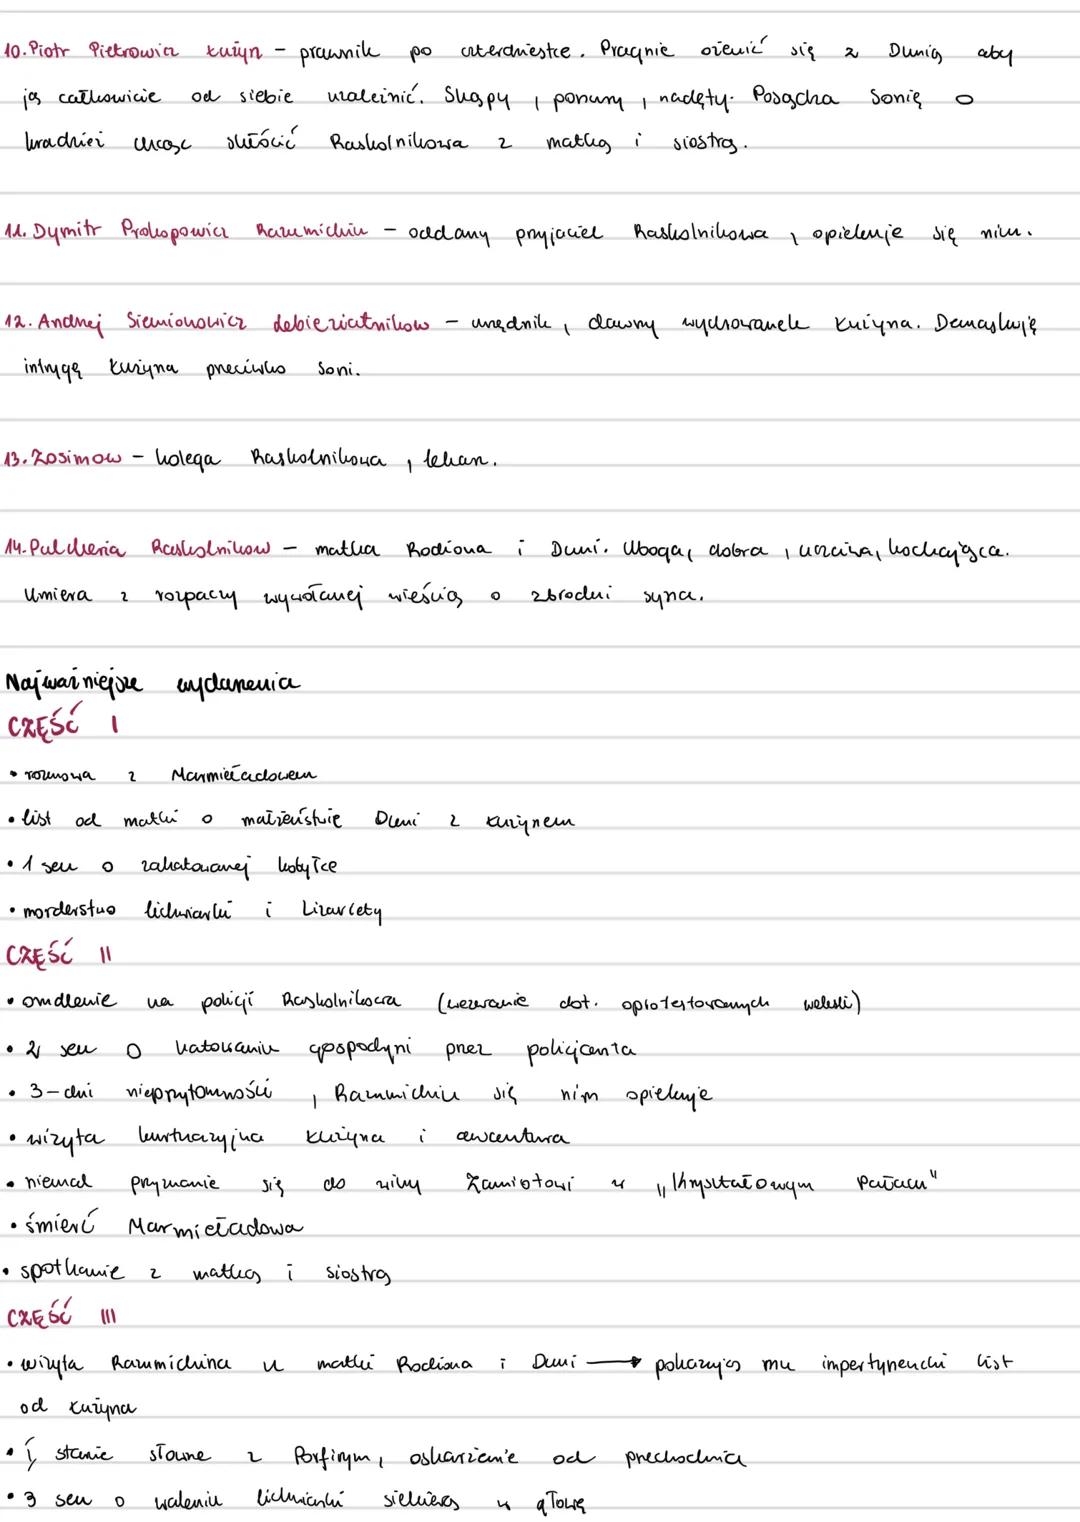 10. Piotr Pietrowicz Łużyn - prawnik po czterdziestce. Pragnie ożenić się z Dunią aby
ją całkowicie od siebie uzależnić. Skąpy, ponury, nadęty. Posądza Sonię o
kradzież chcąc skłócić Raskolnikowa z matką i siostrą.
11. Dymitr Prokopowicz Razumichin - oddany przyjaciel Raskolnikowa, opiekuje się nim.
12. Andriej Siemionowicz Lebieziatnikow - urzędnik, dawny wychowanek Łużyna. Demaskuje
intrygę Łużyna przeciwko Soni.
13. Zosimow - kolega Raskolnikowa, lekarz.
14. Pulcheria Raskolnikow - matka Rodiona i Duni. Uboga, dobra, uczciwa, kochająca.
Umiera z rozpaczy wywołanej wieścią o zbrodni syna.
Najważniejsze wydarzenia
CZĘŚĆ I
• rozmowa z Marmieładowem
• list od matki o małżeństwie Duni z Łużynem
• 1 sen o zakatowanej kobyłce
• morderstwo lichwiarki i Lizawiety
CZĘŚĆ II
• omdlenie na policji Raskolnikowa (wezwanie dot. oprotestowanych weksli)
• 2 sen o katowaniu gospodyni przez policjanta
• 3-dni nieprzytomności, Razumichin się nim opiekuje
• wizyta kurtuazyjna Łużyna i awantura
• niemal przyznanie się do winy Zamiotowi w „Kryształowym Pałacu"
• śmierć Marmieładowa
• spotkanie z matką i siostrą
CZĘŚĆ III
• wizyta Razumichina u matki Rodiona i Duni → pokazują mu impertynencki list
od Łużyna
• 1 starcie słowne z Porfirym, oskarżenie od przechodnia
• 3 sen o waleniu lichwiarki siekierą w głowę